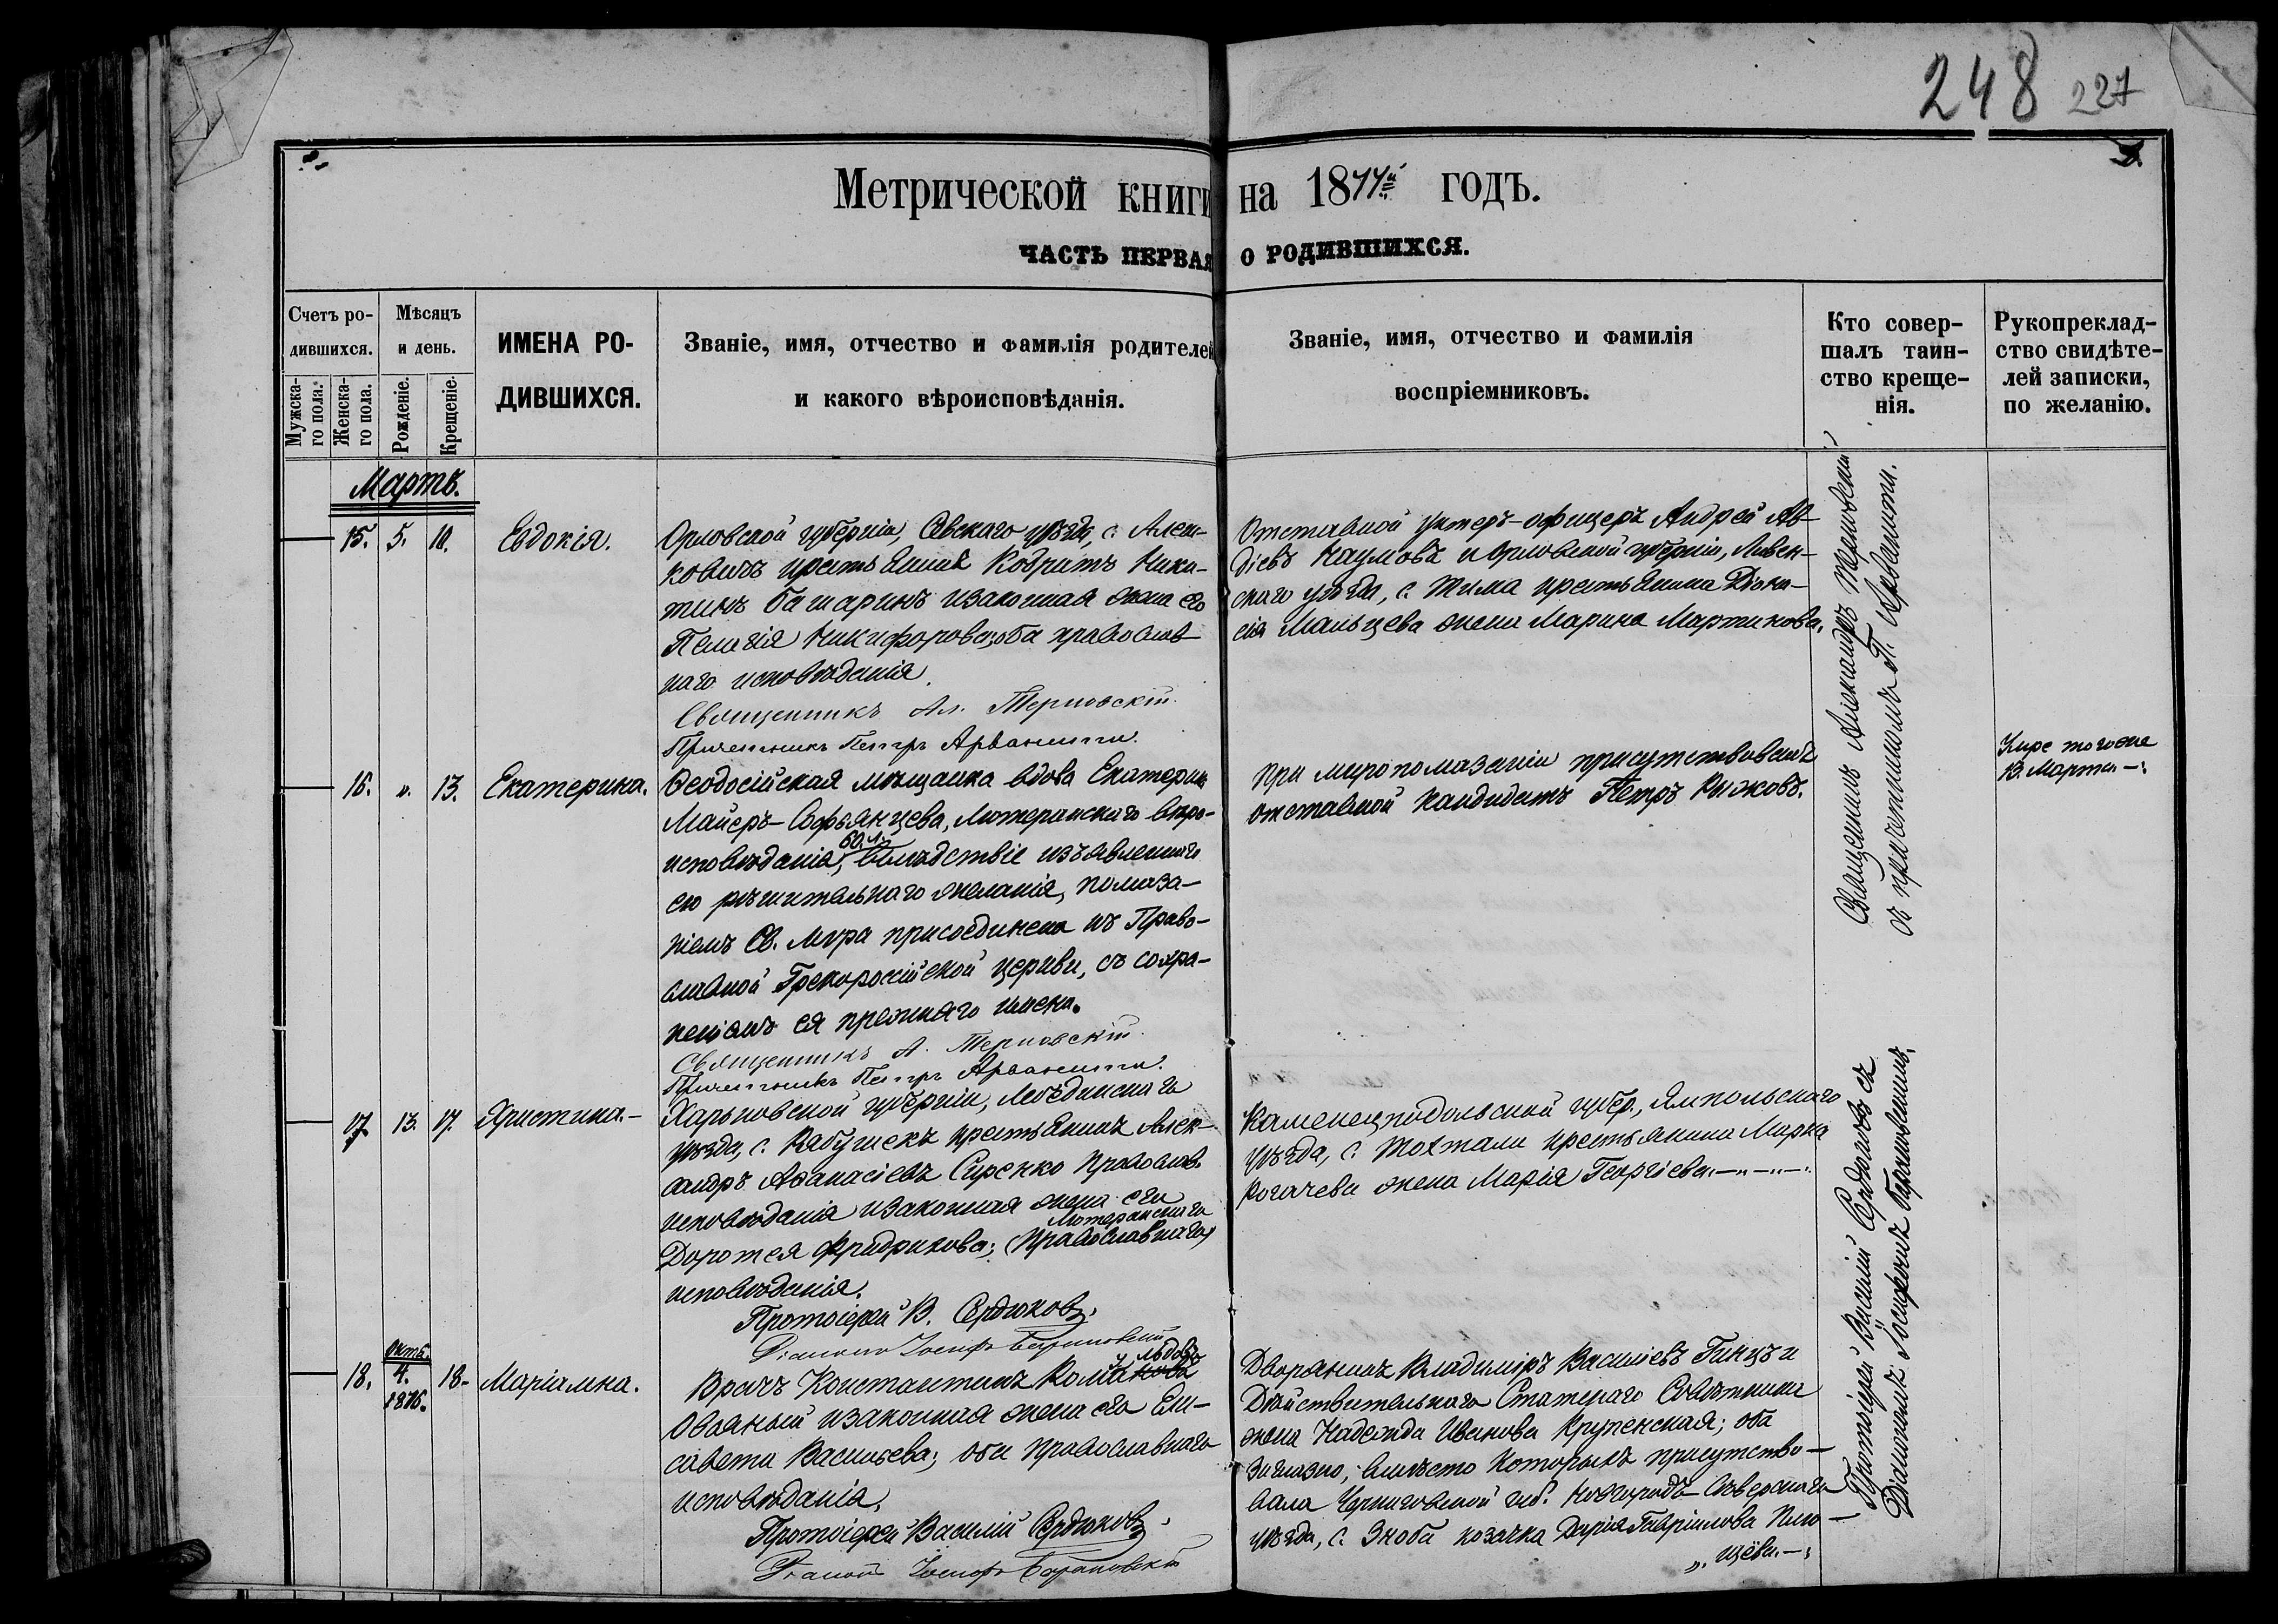 248 227
Метрической книги на 1877й годъ.
ЧАСТЬ ПЕРВАЯ О РОДИВШИХСЯ.
Счетъ ро-
дившихся.
Мужска-
го пола.
Женска-
го пола.
Мѣсяцъ
и день.
Рожденіе.
Крещеніе.
ИМЕНА РО-
ДИВШИХСЯ.
Званіе, имя, отчество и фамилія родителей
и какого вѣроисповѣданія.
Званіе, имя, отчество и фамилія
воспріемниковъ.
Кто совер-
шалъ таин-
ство креще-
нія.
Рукопреклад-
ство свидѣте-
лей записки,
по желанію.
Мартъ.
15. 5. 10. Евдокія.
Орловской губерніи, Севскаго уѣзда, с. Алеш-
ковичъ крестьянинъ Кодратъ Ники-
тинъ Башаринъ изаконная жена его
Пелагія Никифорова, оба православ-
наго исповѣданія.
Священникъ Ал. Терновскій
Причетникъ Петръ Арванити.
Отставной унтеръ-офицеръ Андрей Ав-
діевъ Наумовъ и Орловской губерніи, Ливен-
скаго уѣзда, с. Тима крестьянина Діони-
сія Мальцева жена Марина Мартинова.
16. „. 13. Екатерина.
Ѳеодосійская мѣщанка вдова Екатерина
Майеръ-Софьянцева, Лютеранскаго вѣро-
исповѣданія, 60 л. вслѣдствіе изъявленнаго
ею рѣшительнаго желанія, помаза-
ніемъ Св. Мѵра присоединена къ Право-
славной Грекороссійской церкви, съ сохра-
неніемъ ея прежняго имени.
Священникъ А. Терновскій
Причетникъ Петръ Арванити.
При миропомазаніи присутствовалъ
отставной кандидатъ Петръ Рыжовъ.
13. Марта
Священникъ Александръ Терновскій
съ причетникомъ П. Арванити.
17. 13. 17. Христина.
Харьковской губерніи, Лебединскаго
уѣзда, с. Рябушекъ крестьянинъ Алек-
сандръ Аѳанасіевъ Сиренко православ.
исповѣданія изаконная жена его
Доротея Фридрихова; (православнаго) Лютеранскаго
исповѣданія.
Протоіерей В. Сердюковъ.
Діаконъ Іосифъ Барановскій
Каменецподольской губер., Ямпольскаго
уѣзда, с. крестьянина Марка
Рогачева жена Марія Георгіева
18. Окт. 4. 1876. 18. Маріамна.
Врачъ Константинъ
изаконная жена его Ели-
савета Васильева; оба православнаго
исповѣданія.
Протоіерей Василій Сердюковъ.
Діаконъ Іосифъ Барановскій
Дворянинъ Владиміръ Васильевъ Гинцъ и
Дѣйствительнаго Статскаго Совѣтника
жена Надежда Иванова Крупенская; оба
заглазно, вмѣсто которыхъ присутство-
вала Черниговской губ. Новгородъ-Сѣверскаго
уѣзда, с. Зноби козачка Дарія Гавріилова
Протоіерей Василій Сердюковъ съ
Діакономъ Іосифомъ Барановскимъ.